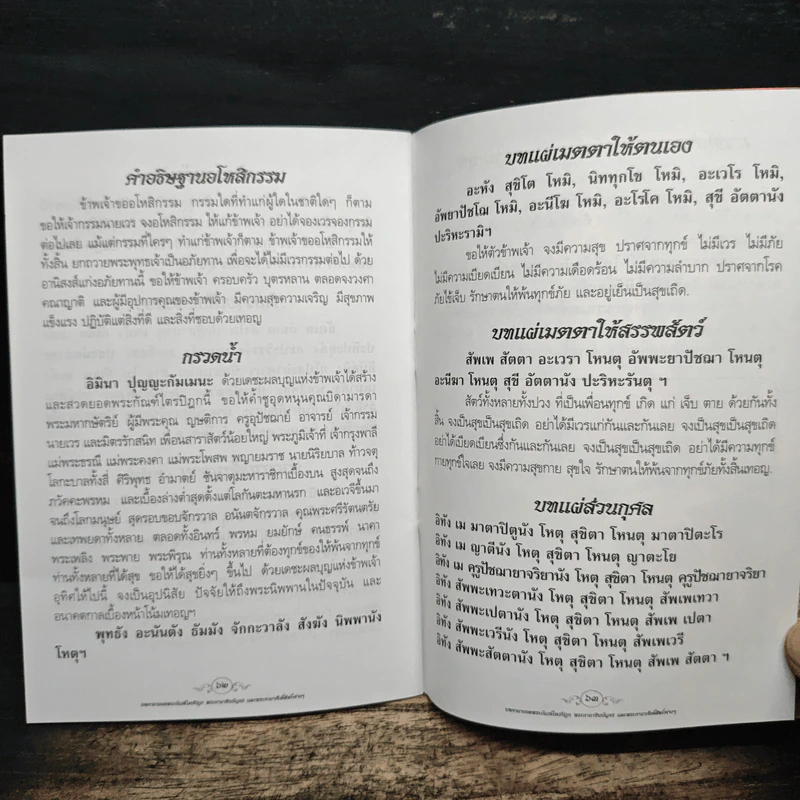 คำอธิษฐานอโหสิกรรม
ข้าพเจ้าขออโหสิกรรม กรรมใดที่ทำแก่ผู้ใดในชาติใดๆ ก็ตาม
ขอให้เจ้ากรรมนายเวร จงอโหสิกรรม ให้แก่ข้าพเจ้า อย่าได้จองเวรจองกรรม
ต่อไปเลย แม้แต่กรรมที่ใครๆ ทำแก่ข้าพเจ้าก็ตาม ข้าพเจ้าขออโหสิกรรมให้
ทั้งสิ้น ยกถวายพระพุทธเจ้าเป็นอภัยทาน เพื่อจะได้ไม่มีเวรกรรมต่อไป ด้วย
อานิสงส์แห่งอภัยทานนี้ ขอให้ข้าพเจ้า ครอบครัว บุตรหลาน ตลอดจงวงศา
คณาญาติ และผู้มีอุปการคุณของข้าพเจ้า มีความสุขความเจริญ มีสุขภาพ
แข็งแรง ปฏิบัติแต่สิ่งที่ดี และสิ่งที่ชอบด้วยเทอญ
กรวดน้ำ
อิมินา ปุญญะกัมเมนะ ด้วยเดชะผลบุญแห่งข้าพเจ้าได้สร้าง
และสวดยอดพระกัณฑ์ไตรปิฎกนี้ ขอให้ค้ำชูอุดหนุนคุณบิดามารดา
พระมหากษัตริย์ ผู้มีพระคุณ ญาติการ ครูอุปัชฌาย์ อาจารย์ เจ้ากรรม
นายเวร และมิตรรักสนิท เพื่อนสาราสัตว์น้อยใหญ่ พระภูมิเจ้าที่ เจ้ากรุงพาลี
แม่พระธรณี แม่พระคงคา แม่พระโพสพ พญายมราช นายนิริยบาล ท้าวจตุ
โลกะบาลทั้งสี่ ศิริพุทธ อำมาตย์ ชั้นจาตุมะหาราชิกาเบื้องบน สูงสุดจนถึง
ภวัคคะพรหม และเบื้องล่างต่ำสุดตั้งแต่โลกันตะมหานรก อเวจีขึ้นมา
จนถึงโลกมนุษย์ สุดรอบขอบจักรวาล อนันตจักรวาล คุณพระศรีรัตนตรัย
และเทพยดาทั้งหลาย ตลอดทั้งอินทร์ พรหม ยมยักษ์ คนธรรพ์ นาคา
พระเพลิง พระพาย พระพิรุณ ท่านทั้งหลายที่ต้องทุกข์ขอให้พ้นจากทุกข์
ท่านทั้งหลายที่ได้สุข ขอให้ได้สุขยิ่งๆ ขึ้นไป ด้วยเดชะผลบุญแห่งข้าพเจ้า
อุทิศให้ไปนี้ จงเป็นอุปนิสัย ปัจจัยให้ถึงพระนิพพานในปัจจุบัน และ
อนาคตกาลเบื้องหน้าโน้นเทอญฯ
พุทธัง อะนันตัง ธัมมัง จักกะวาลัง สังฆัง นิพพานัง
โหตุฯ
๖๒
บทแผ่เมตตาให้ตนเอง
อะหัง สุขิโต โหมิ, นิททุกโข โหมิ, อะเวโร โหมิ,
อัพยาปัชโฌ โหมิ, อะนีโฆ โหมิ, อะโรโค โหมิ, สุขี อัตตานัง
ปะริหะรามิฯ
ขอให้ตัวข้าพเจ้า จงมีความสุข ปราศจากทุกข์ ไม่มีเวร ไม่มีภัย
ไม่มีความเบียดเบียน ไม่มีความเดือดร้อน ไม่มีความลำบาก ปราศจากโรค
ภัยไข้เจ็บ รักษาตนให้พ้นทุกข์ภัย และอยู่เย็นเป็นสุขเถิด.
บทแผ่เมตตาให้สรรพสัตว์
สัพเพ สัตตา อะเวรา โหนตุ อัพพะยาปัชฌา โหนตุ
อะนีฆา โหนตุ สุขี อัตตานัง ปะริหะรันตุ ฯ
สัตว์ทั้งหลายทั้งปวง ที่เป็นเพื่อนทุกข์ เกิด แก่ เจ็บ ตาย ด้วยกันทั้ง
สิ้น จงเป็นสุขเป็นสุขเถิด อย่าได้มีเวรแก่กันและกันเลย จงเป็นสุขเป็นสุขเถิด
อย่าได้เบียดเบียนซึ่งกันและกันเลย จงเป็นสุขเป็นสุขเถิด อย่าได้มีความทุกข์
กายทุกข์ใจเลย จงมีความสุขกาย สุขใจ รักษาตนให้พ้นจากทุกข์ภัยทั้งสิ้นเทอญ.
บทแผ่ส่วนกุศล
อิทัง เม มาตาปิตูนัง โหตุ สุขิตา โหนตุ มาตาปิตะโร
อิทัง เม ญาตีนัง โหตุ สุขิตา โหนตุ ญาตะโย
อิทัง เม คุรูปัชฌายาจริยานัง โหตุ สุขิตา โหนตุ คุรูปัชฌายาจริยา
อิทัง สัพพะเทวะตานัง โหตุ สุขิตา โหนตุ สัพเพเทวา
อิทัง สัพพะเปตานัง โหตุ สุขิตา โหนตุ สัพเพ เปตา
อิทัง สัพพะเวรีนัง โหตุ สุขิตา โหนตุ สัพเพเวรี
อิทัง สัพพะสัตตานัง โหตุ สุขิตา โหนตุ สัพเพ สัตตา ฯ
๖๓